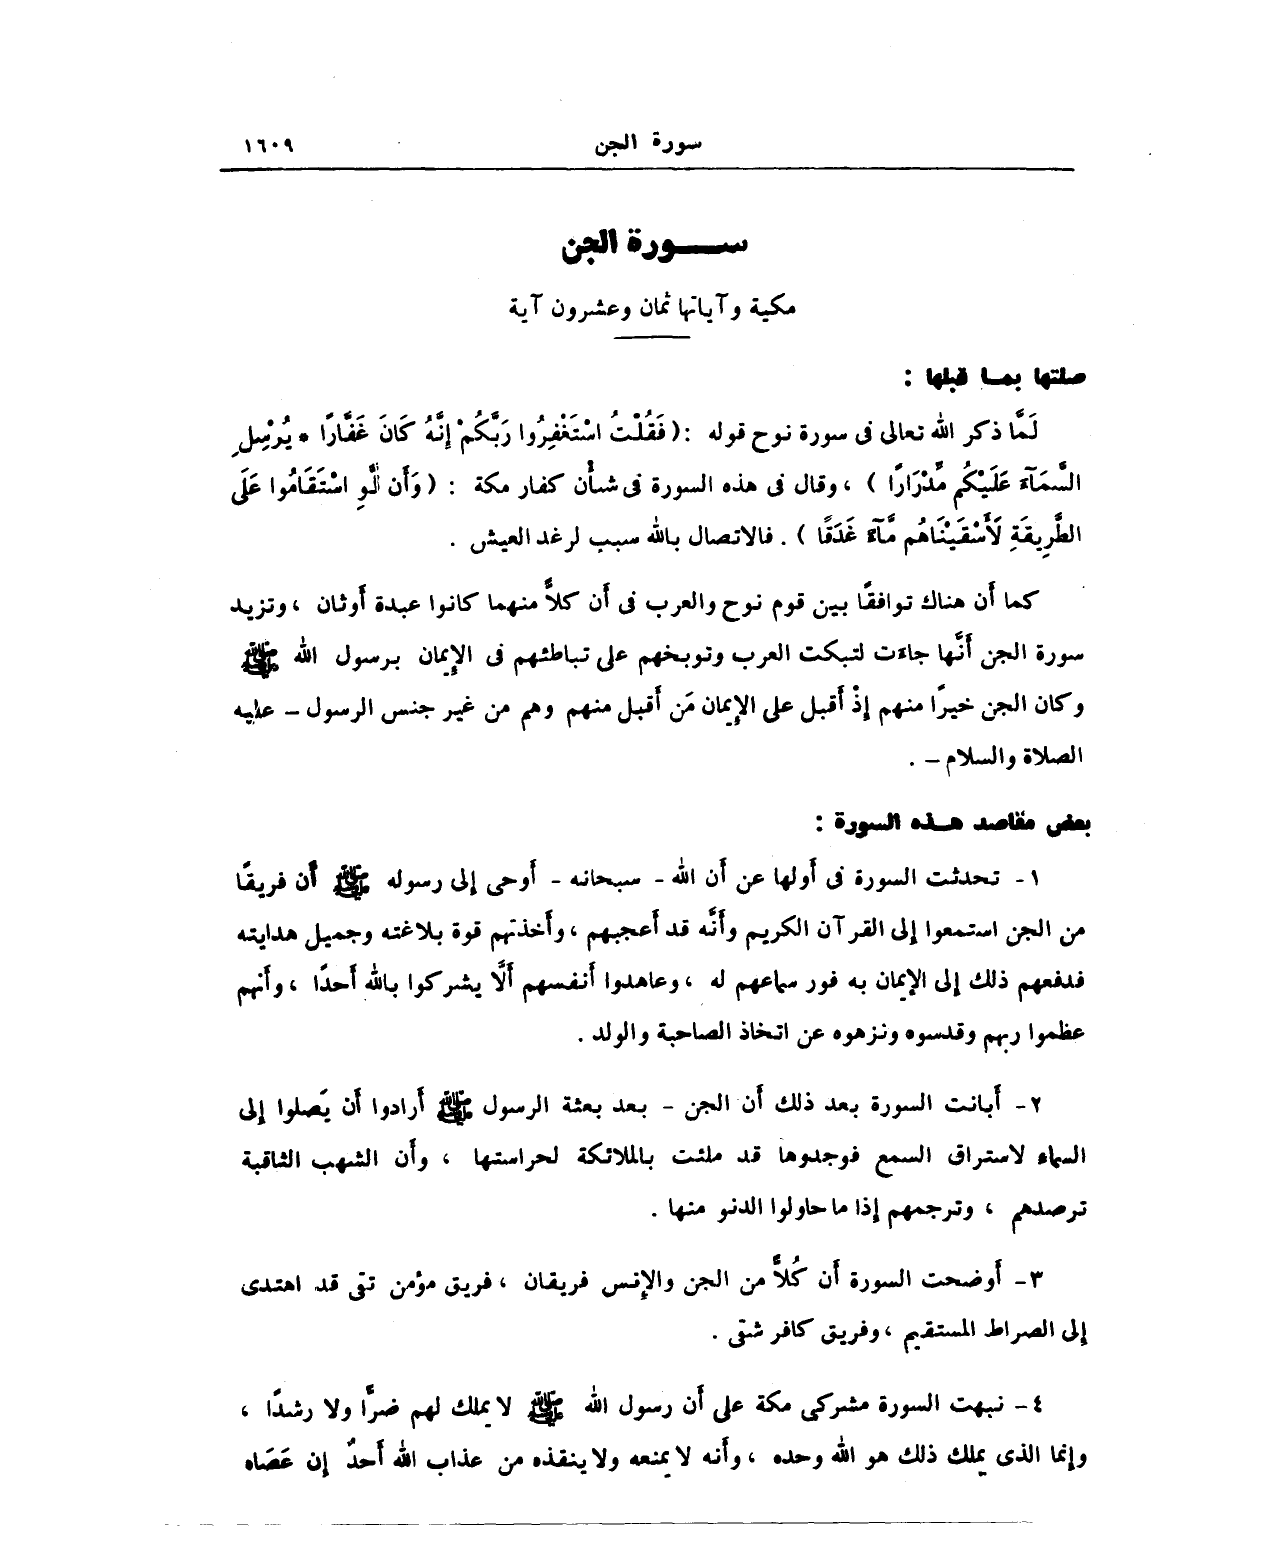 سورة الجن ١٦٠٩
ســـورة الجن
مكية وآياتها ثمان وعشرون آية
صلتها بمـا قبلها :
لَمَّا ذكر الله تعالى فى سورة نوح قوله : ( فَقُلْتُ اسْتَغْفِرُوا رَبَّكُمْ إِنَّهُ كَانَ غَفَّارًا * يُرْسِلِ
السَّمَآءَ عَلَيْكُم مِّدْرَارًا ) ، وقال فى هذه السورة فى شأن كفار مكة : ( وَأَن لَّوِ اسْتَقَامُوا عَلَى
الطَّرِيقَةِ لَأَسْقَيْنَاهُم مَّآءً غَدَقًا ) . فالاتصال بالله سبب لرغد العيش .
كما أن هناك توافقًا بين قوم نوح والعرب فى أن كلاًّ منهما كانوا عبدة أوثان ، وتزيد
سورة الجن أَنَّها جاءَت لتبكت العرب وتوبخهم على تباطئهم فى الإِيمان برسول الله ﷺ
وكان الجن خيرًا منهم إِذْ أَقبل على الإِيمان مَن أَقبل منهم وهم من غير جنس الرسول – عليه
الصلاة والسلام – .
بعض مقاصد هـذه السورة :
١- تحدثت السورة فى أولها عن أن الله - سبحانه - أوحى إلى رسوله ﷺ أن فريقًا
من الجن استمعوا إلى القرآن الكريم وأَنَّه قد أَعجبهم ، وأخذتهم قوة بلاغته وجميل هدايته
فدفعهم ذلك إلى الإيمان به فور سماعهم له ، وعاهدوا أنفسهم أَلَّا يشركوا بالله أَحدًا ، وأنهم
عظموا ربهم وقدسوه ونزهوه عن اتخاذ الصاحبة والولد .
٢- أَبانت السورة بعد ذلك أَن الجن - بعد بعثة الرسول ﷺ أَرادوا أَن يَصلوا إِلى
السماء لاستراق السمع فوجدوها قد ملئت بالملائكة لحراستها ، وأَن الشهب الثاقبة
ترصدهم ، وترجمهم إذا ما حاولوا الدنو منها .
٣- أَوضحت السورة أن كُلاًّ من الجن والإِنس فريقان ، فريق مؤمن تقى قد اهتدى
إلى الصراط المستقيم ، وفريق كافر شقى .
٤- نبهت السورة مشركى مكة على أَن رسول الله ﷺ لا يملك لهم ضرًّا ولا رشدًا ،
وإنما الذى يملك ذلك هو الله وحده ، وأَنه لا يمنعه ولا ينقذه من عذاب الله أَحدٌ إن عَصَاه